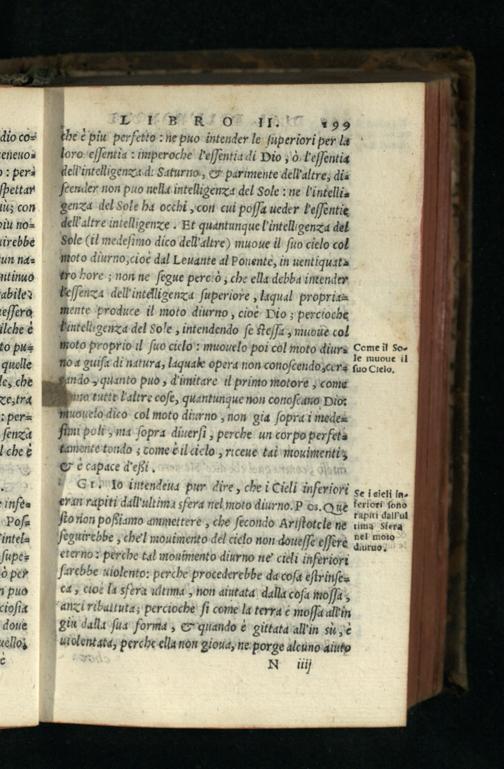 LIBRO II. 199
che è piu perfetto: ne puo intender le superiori per la
loro essentia: imperoche l'essentia di Dio, ò l'essentia
dell'intelligenza di Saturno, & parimente dell'altre, di=
scender non puo nella intelligenza del Sole: ne l'intelli=
genza del Sole ha occhi, con cui possa ueder l'essentie
dell'altre intelligenze. Et quantunque l'intelligenza del
Sole (il medesimo dico dell'altre) muoue il suo cielo col
moto diurno, cioè dal Leuante al Ponente, in uentiquat=
tro hore; non ne segue perciò, che ella debba intender
l'essenza dell'intelligenza superiore, laqual propria=
mente produce il moto diurno, cioè Dio; percioche
l'intelligenza del Sole, intendendo se stessa, muoue col
moto proprio il suo cielo: muouelo poi col moto diur=
no a guisa di natura, laquale opera non conoscendo, cer=
cando, quanto può, d'imitare il primo motore, come
tutte l'altre cose, quantunque non conoscano Dio:
muouelo dico col moto diurno, non già sopra i mede=
simi poli, ma sopra diuersi, perche un corpo perfet=
tamente tondo; come è il cielo, riceue tai mouimenti,
& è capace d'essi.
Come il So-
le muoue il
suo Cielo.
GI. Io intendeua pur dire, che i Cieli inferiori
eran rapiti dall'ultima sfera nel moto diurno. POS. Que
sto non possiamo ammettere, che secondo Aristotele ne
seguirebbe, che'l mouimento del cielo non douesse essere
eterno: perche tal mouimento diurno ne' cieli inferiori
sarebbe uiolento: perche procederebbe da cosa estrinse=
ca, cioè la sfera ultima, non aiutata dalla cosa mossa,
anzi ributtata; percioche si come la terra è mossa all'in
giu dalla sua forma, & quando è gittata all'in sù, è
uiolentata, perche ella non gioua, ne porge alcuno aiuto
Se i cieli in-
feriori sono
rapiti dall'ul
tima Sfera
nel moto
diurno.
N iiij